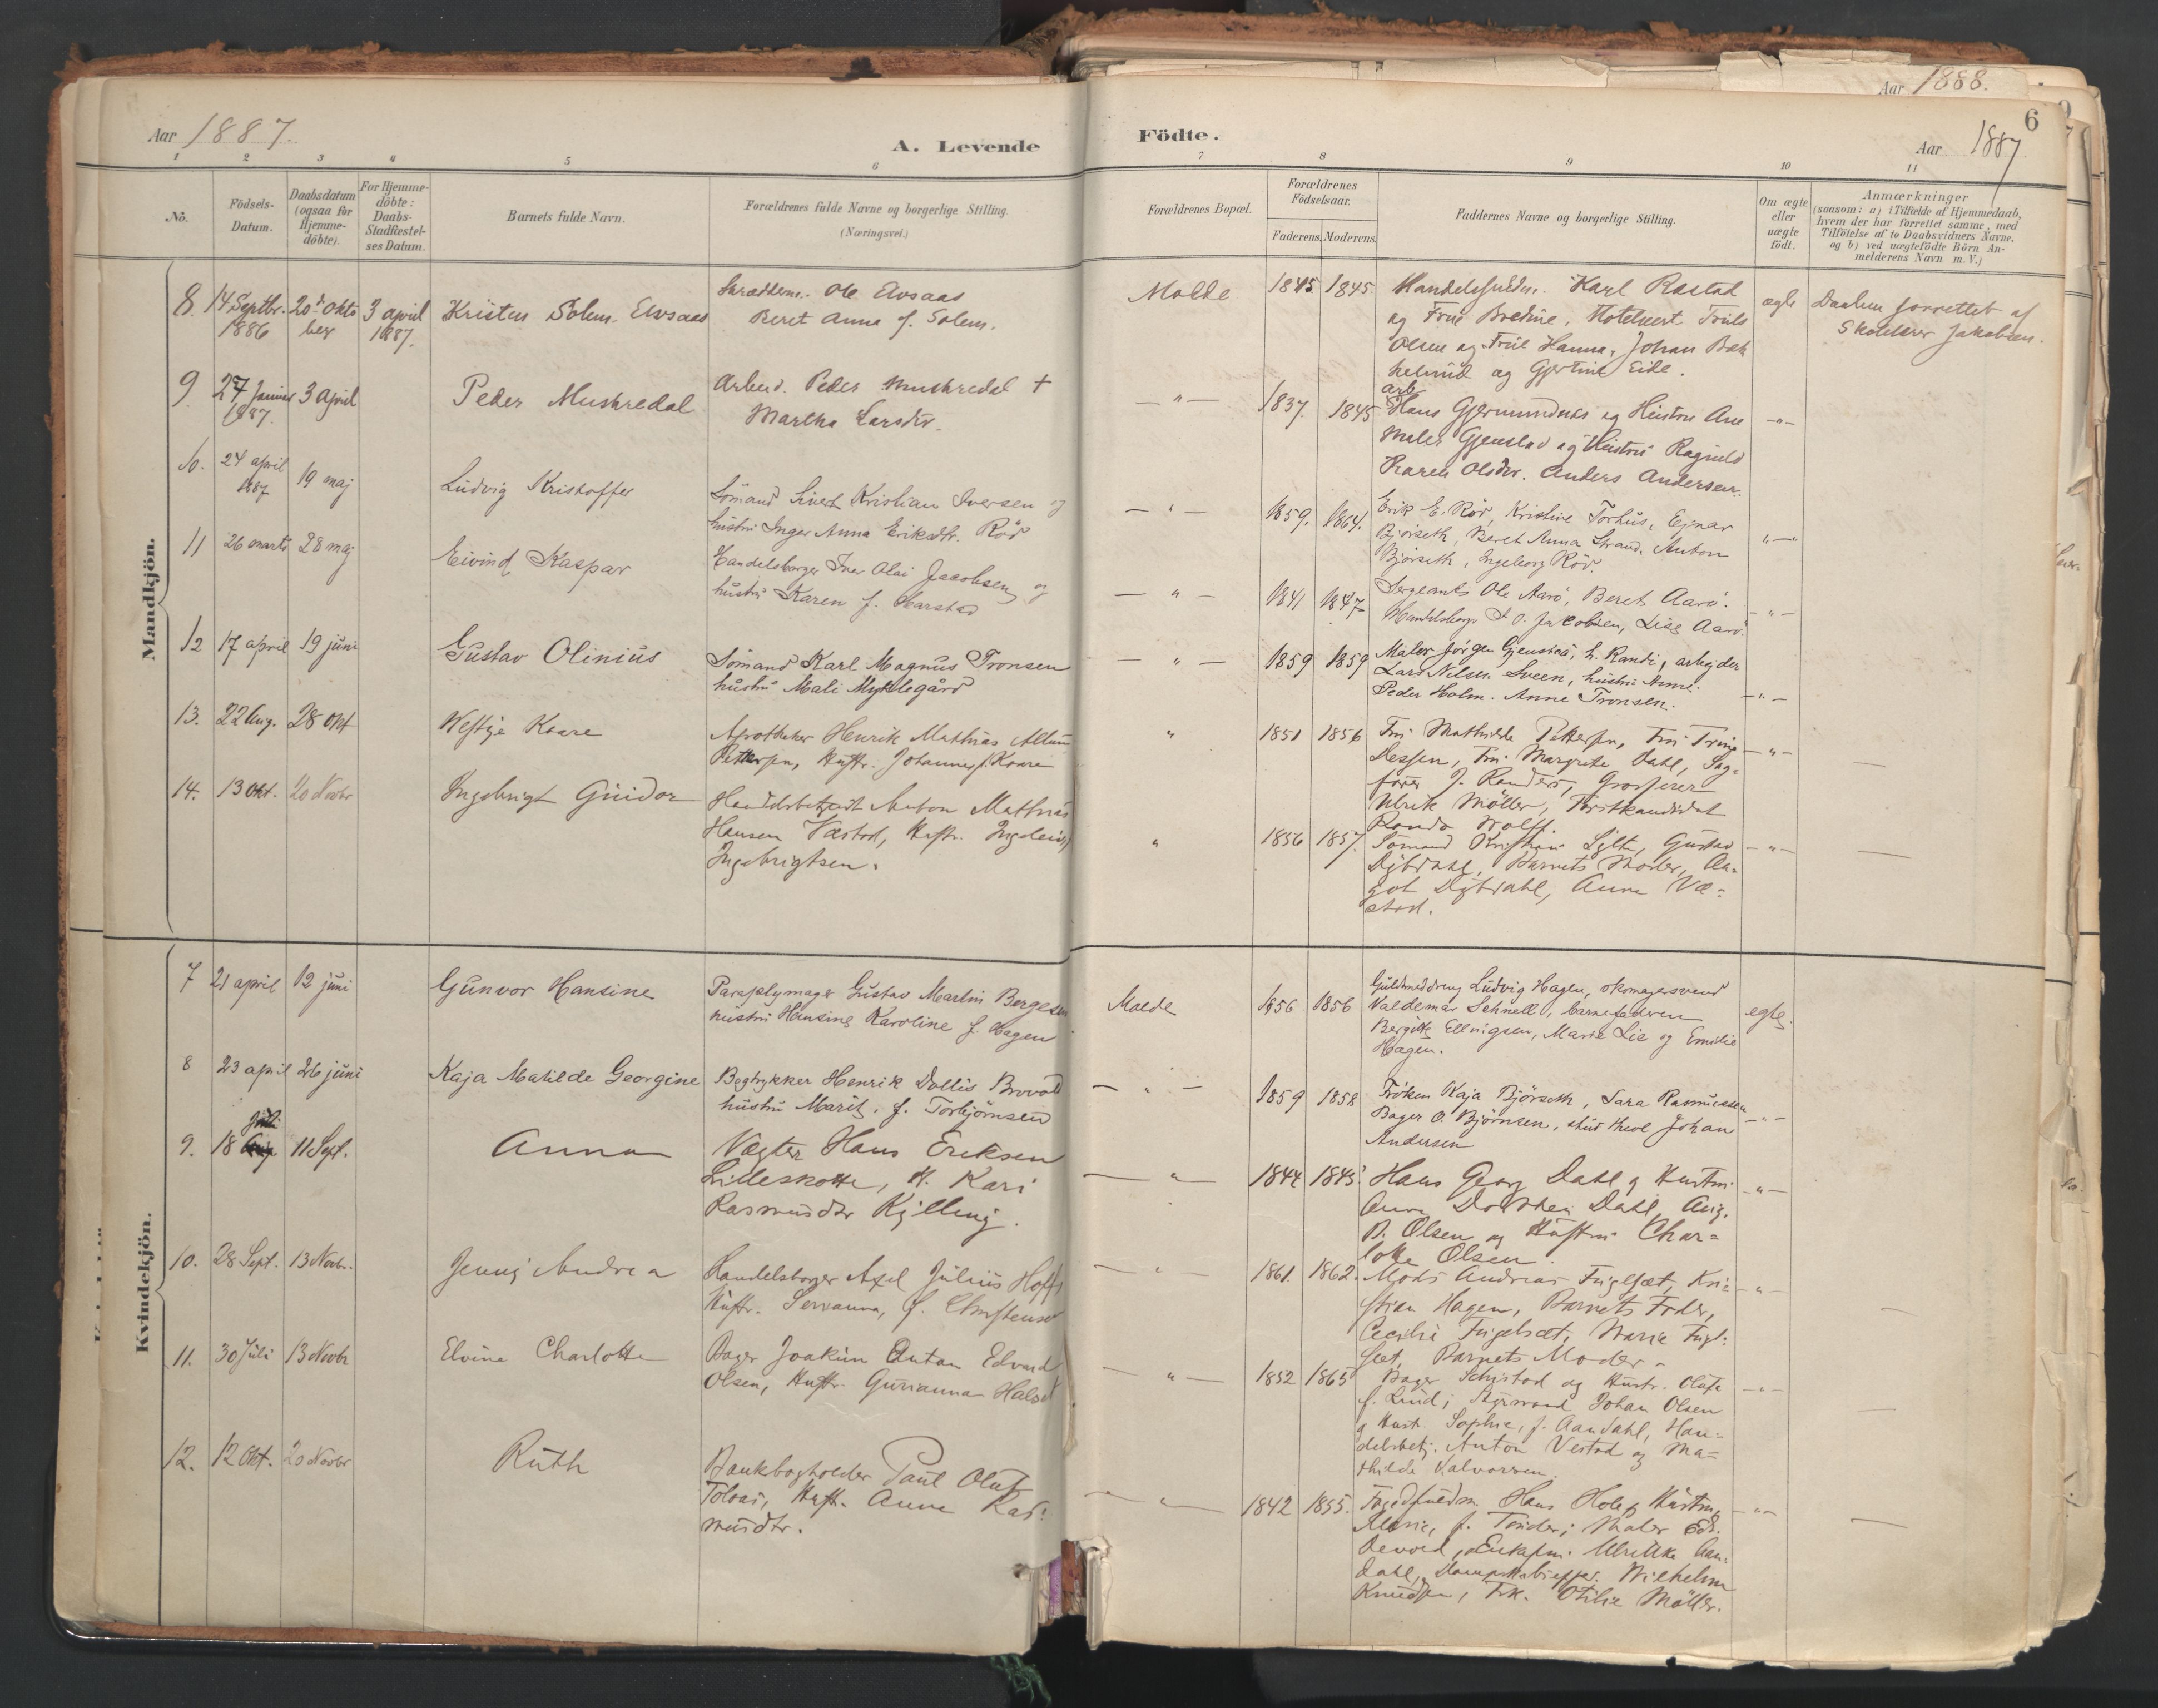 Aar 1887.
A. Levende
Födte.
Aar 1888.
6
Aar 1887
1 2 3 4 5 6 7 8 9 10 11
No.
Födsels-
Datum.
Daabsdatum
(ogsaa for
Hjemme-
döbte).
For Hjemme-
döbte:
Daabs-
Stadfæstel-
ses Datum.
Barnets fulde Navn.
Forældrenes fulde Navne og borgerlige Stilling.
(Næringsvei.)
Forældrenes Bopæl.
Forældrenes
Födselsaar.
Faderens. Moderens.
Faddernes Navne og borgerlige Stilling.
Om ægte
eller
uægte
födt.
Anmærkninger
(saasom: a) i Tilfælde af Hjemmedaab,
hvem der har forrettet samme, med
Tilföielse af to Daabsvidners Navne,
og b) ved uægtefödte Börn An-
melderens Navn m. V.)
Mandkjön.
8 14 Septbr. 1886
20de Okto
ber
3 april
1887.
Kristen Solem Elvsaas
Ole Elvsaas
Beret Anna f. Solem.
Molde
1845 1845.
Karl Rastad
og Frue Bredine, Hotelvert Truls
Olsen og Frue Hanna, Johan Bak
helmid og Gjertine Eide.
ægte
Daaben forrettet af
Skolelærer Jakobsen.
9 27 Januar 1887. 3 April
Peder Muskredal
Arbeid. Peder Muskredal +
Martha Larsdtr.
— " — 1837. 1845
arb.
Hans Gjermundnes og Hustru Ane
Maler Gjenstad og Hustru Ragnild
Karen Olsdtr. Anders Andersen.
— " —
10. 24 april 1887 19 maj
Ludvig Kristoffer
Sömand Sivert Kristian Iversen og
hustru Inger Anna Eriksdtr. Röd
— " — 1859. 1864.
Erik E. Röd, Kristine Torhus, Ejnar
Bjørseth, Beret Anna Strand, Anton
Bjørseth, Ingeborg Röd.
" — "
11 26 marts 28 maj
Eivind Kaspar
Handelsborger Iver Olai Jacobsen og
hustru Karen f. Harstad
— " — 1841 1847
Sergeants Ole Aarö, Beret Aarö.
Handelsborger I. O. Jacobsen, Lise Aarö.
— " —
12 17 april 19 juni
Gustav Olinius
Sömand Karl Magnus Tronsen
hustru Mali Myklegård
— " — 1859 1859
Maler Jörgen Gjenstad, h. Randi, arbejder
Lars Nilsen Sveen, hustru Anne.
Peder Holm. Anne Tronsen.
— " —
13. 22 Aug. 28 Okt
Kaare
Apotheker Henrik Mathias
Pettersen, Hustr. Johanne f. Kaare
" 1851 1856
Fru Mathilde Pettersen, Fru Trine
Dessen, Fru Margrete Dahl, Sag-
förer J. Randers, Grosserer
Ulrik Möller, Forstkandidat
Wolff.
— " — —
14. 13 Okt. 20 Novbr
Ingebrigt Guidor
Handelsbetjent Anton Mathias
Hansen Væstad, Hustr. Ingeleiv
Ingebrigtsen.
" 1856 1857.
Sömand Kristian Sylte, Gustav
Djbdahl, Barnets Moder, Aa-
got Djbdahl, Anna Væ-
stad.
— " — —
Kvindekjön.
7 21 april 12 juni
Gunvor Hansine
Paraplymager Gustav Martin Borgesen
hustru Hansine Karoline f. Hagen
Molde
1856 1856
Guldsmeddreng Ludvig Hagen, skomagersvend
Valdemar Schnell, barnefaderen
Bergitte Ellingsen, Marie Lie og Emilie
Hagen.
egte.
8 23 april 26 juni
Kaja Matilde Georgine
Bogtrykker Henrik Dollis Brovold
hustru Marit, f. Torbjörnsen
— " — 1859 1858
Fröken Kaja Björseth, Sara Rasmussen
Bager O. Björnsen, stud theol Johan
Andersen
— " —
9. 18 Juli 11 Sept.
Anna
Vægter Hans Eriksen
Lilleskotte, H. Kari
Rasmusdtr Kylling.
— " — 1844 1845.
Hans Georg Dahl og Hustru
Anne Dorthea Dahl, Aug.
B. Olsen og Hustru Char-
lotte Olsen.
— " —
10. 28 Sept. 13 Novbr.
Jenny Andrea
Handelsborger Axel Julius Hoff
Hustr. Servanna, f. Christensen
— " — 1861. 1862.
Mads Andreas Fugelsæt, Kri-
stian Hagen, Barnets Fader,
Cecilie Fugelsæt, Marie Fugl-
sæt, Barnets Moder.
— " — —
11. 30 Juli 13 Novbr
Elvine Charlotte
Bager Joakim Anton Edvard
Olsen, Hustr. Gurianna Halset
— " — 1852 1865
Bager Schistad og Hustr. Olufa
f. Lund; Styrmand Johan Olsen
og Hustr. Sophie, f. Aandahl, Han-
delsbetj. Anton Vestad og Ma-
thilde Halvorsen.
— " — —
12. 12 Okt. 20 Novbr
Ruth
Bankbogholder Paul Oluf
Tolaas, Hustr. Anna Ras-
musdtr.
— " — 1842 1855.
Hans Hole og Hustru
Marie, f. Tönder; Maler Edv.
Devold, Enkefru Ulrikke Aan-
dahl, Wilhelm
Knudsen, Frk. Otilie Möller.
— " — —